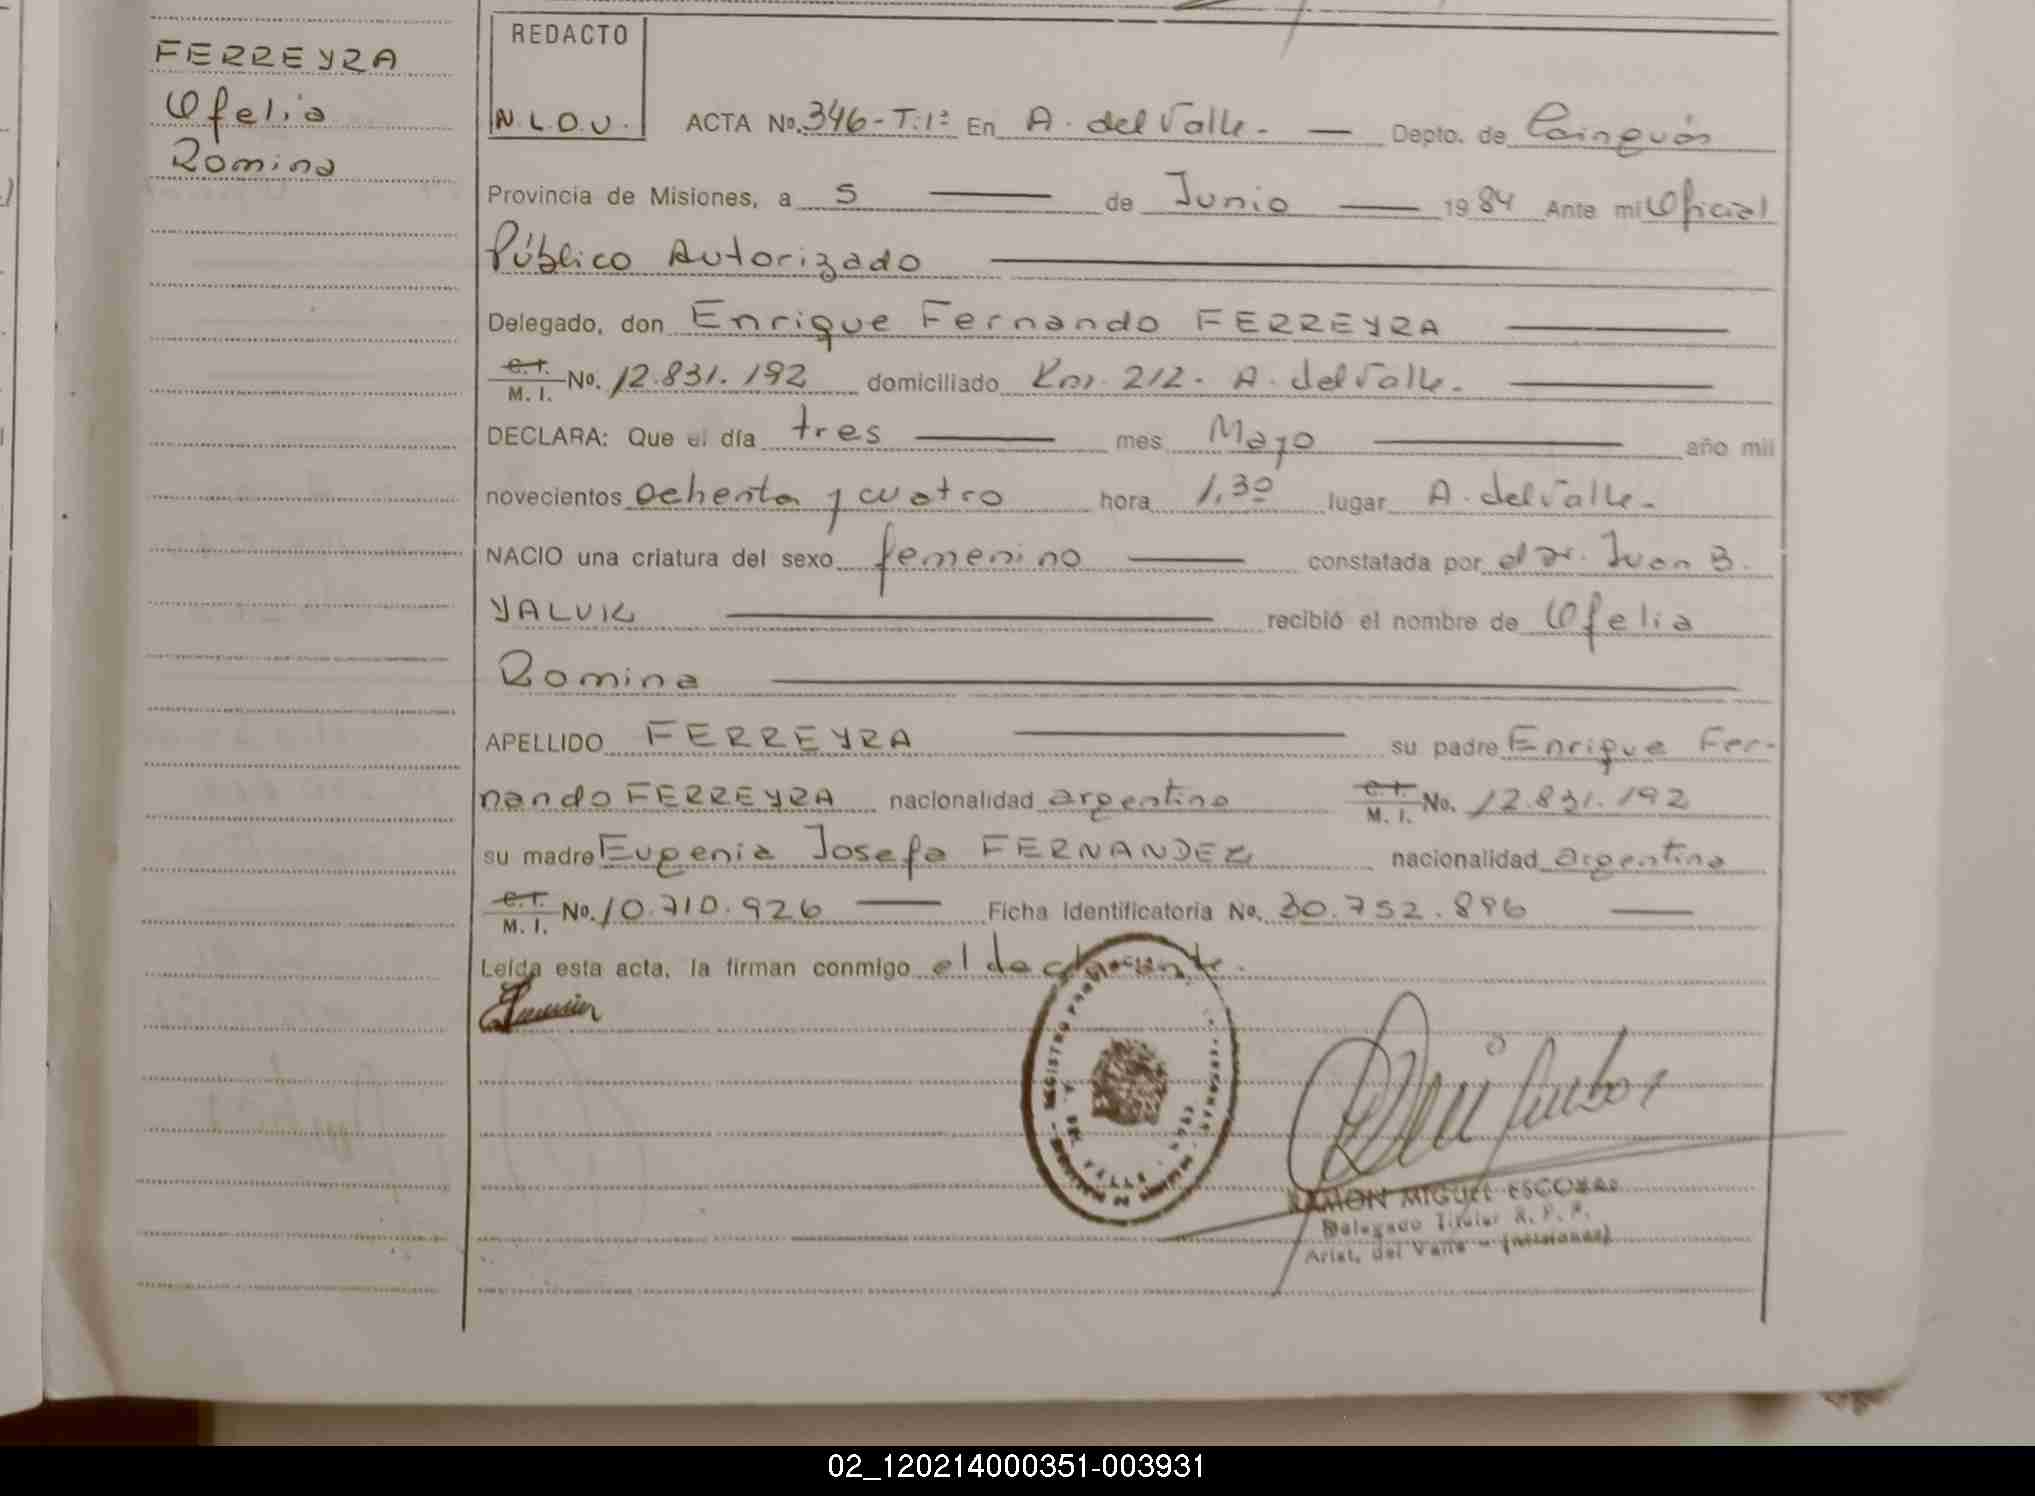 FERREYRA
Ofelia
Romina
REDACTO
N.L.O.V.
ACTA No. 346-T:1ª En A. del Valle. — Depto. de Cainguás
Provincia de Misiones, a 5 — de Junio — 1984 Ante mi Oficial
Público Autorizado
Delegado, don Enrique Fernando FERREYRA
C.I. M. I. No. 12.831.192 domiciliado Km. 212. A. del Valle.
DECLARA: Que el día tres — mes Mayo — año mil
novecientos ochenta y cuatro hora 1,30 lugar A. del Valle.
NACIO una criatura del sexo femenino — constatada por el Dr. Juan B.
YALUK — recibió el nombre de Ofelia
Romina
APELLIDO FERREYRA — su padre Enrique Fer-
nando FERREYRA nacionalidad argentino C.I. M. I. No. 12.831.192
su madre Eugenia Josefa FERNANDEZ nacionalidad argentina
C.I. M. I. No. 10.710.926 — Ficha Identificatoria No. 30.752.896 —
Leída esta acta, la firman conmigo el declarante.
RAMON MIGUEL ESCOBAR
Delegado Titular R. P. P.
Arist. del Valle - (Misiones)
02_120214000351-003931